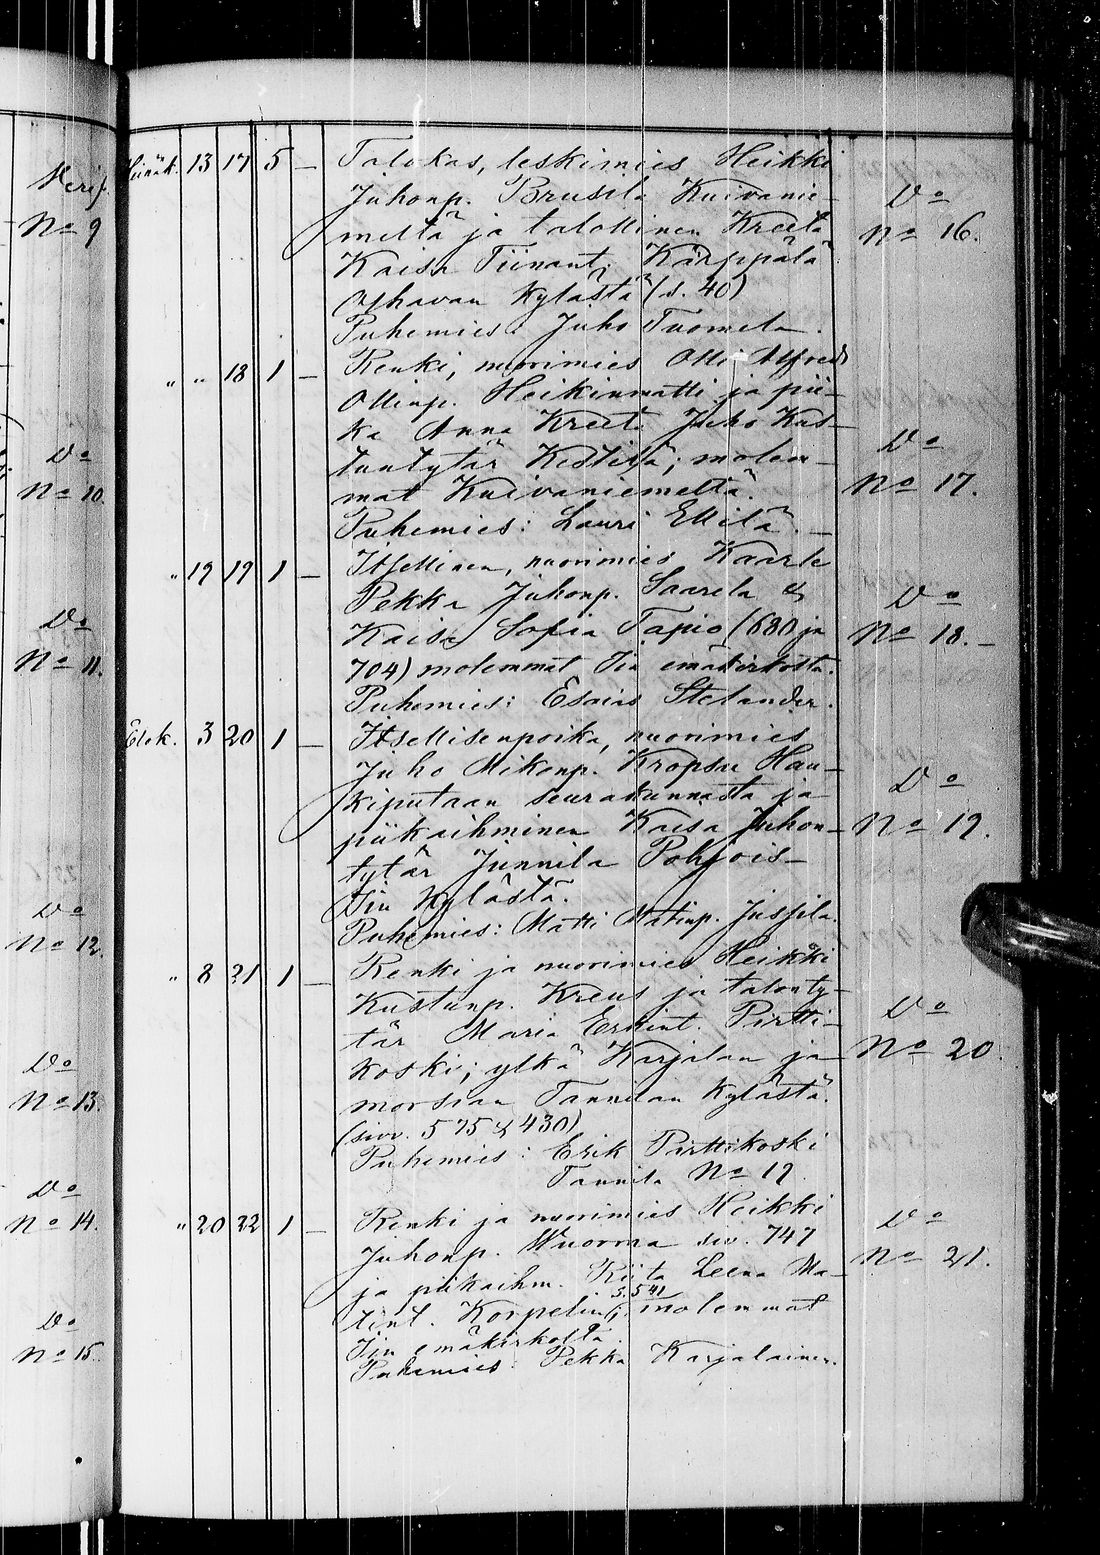 Verif.
No 9
Do
No 10.
Do
No 11.
Do
No 12.
Do
No 13.
Do
No 14.
Do
No 15.
Heinäk. 13 17 5 — Talokas, leskimies Heikki
Juhonp. Brusila Kuivanie-
meltä ja talollinen Kreeta
Kaisa Tiinant. Kärppälä
Olhavan kylästä (s. 40)
Puhemies: Juho Tuomela.
Do
No 16.
" " 18 1 — Renki, nuorimies Olli Alfred
Ollinp. Heikinmatti ja pii-
ka Anna Kreeta Juho Kus-
tuntytär Kestilä; molem-
mat Kuivaniemeltä.
Puhemies: Lauri Ellilä. —
Do
No 17.
" 19 19 1 — Itsellinen, nuorimies Kaarle
Pekka Juhonp. Saarela &
Kaisa Sofia Tapio (680 ja
704) molemmat Iin emäkirkosta.
Puhemies: Esaias Stelander.
Do
No 18. —
Elok. 3 20 1 — Itsellisenpoika, nuorimies
Juho Mikonp. Kropsu Hau-
kiputaan seurakunnasta ja
piikaihminen Kaisa Juhon-
tytär Jinnila Pohjois-
Iin kylästä.
Puhemies: Matti Matinp. Jussila.
Do
No 19.
" 8 21 1 — Renki ja nuorimies Heikki
Kustunp. Kreus ja talonty-
tär Maria Erkint. Pirtti-
koski; ylkä Karjalan ja
morsian Tannilan kylästä.
(sivv. 575 & 430)
Puhemies: Erik Pirttikoski
Tannila No 19.
Do
No 20.
" 20 22 1 — Renki ja nuorimies Heikki
Juhonp. Wuorma siv. 747
ja piikaihm. Riita Leena Ma-
s. 541
tint. Korpelin; molemmat
Iin emäkirkolta.
Puhemies: Pekka Karjalainen.
Do
No 21.